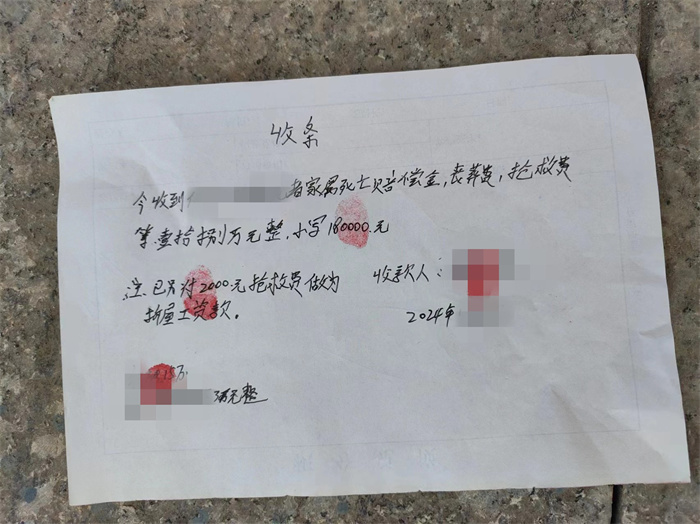 收条
今收到 者家属死亡赔偿金,丧葬费,抢救费
等壹拾捌万元整,小写180000.元
注:已另付2000.元抢救费做为 收款人:
拆屋工资款。 2024年
万元整